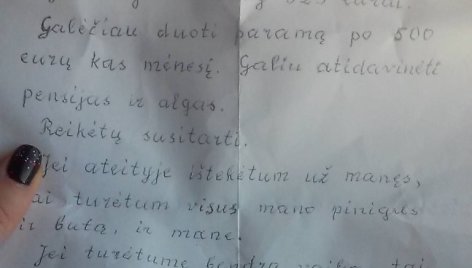 523 eurai.
Galėčiau duoti paramą po 500
eurų kas mėnesį. Galiu atidavinėti
pensijas ir algas.
Reikėtų susitarti.
Jei ateityje ištekėtum už manęs,
tai turėtum visus mano pinigus
ir butą, ir mane.
Jei turėtume bendrą vaiką, tai